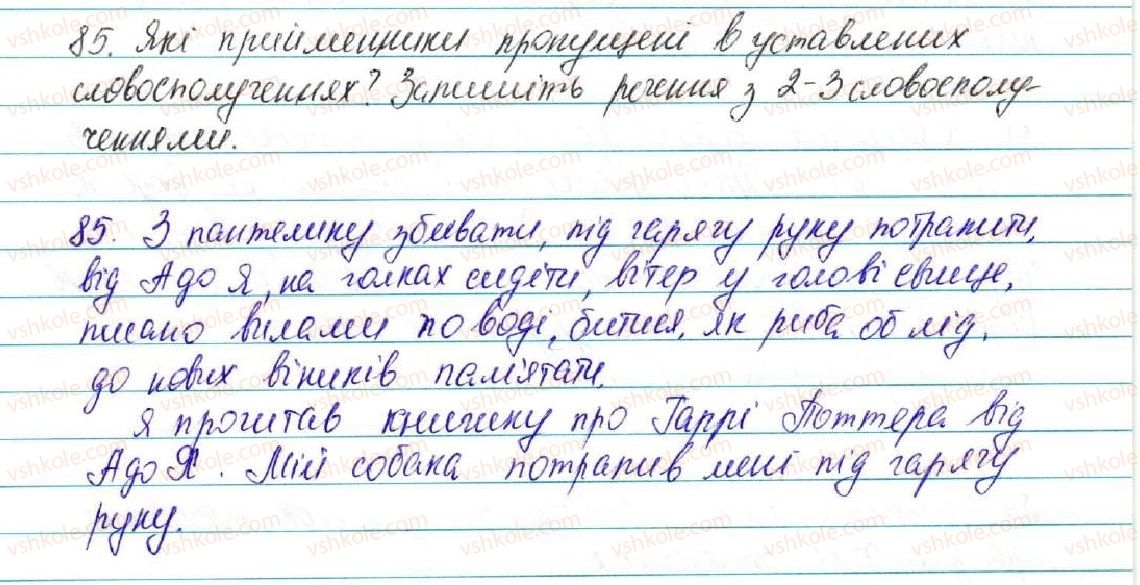 85. Які прийменники пропущені в уставлених
словосполученнях? Запишіть речення з 2-3 словосполу-
ченнями.
85. З пантелику збивати, під гарячу руку потрапити,
від А до Я, на голках сидіти, вітер у голові свище,
писано вилами по воді, битися, як риба об лід,
до нових віників пам'ятати.
Я прочитав книжку про Гаррі Поттера від
А до Я. Мій собака потрапив мені під гарячу
руку.